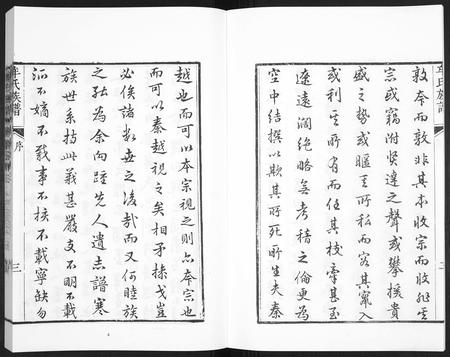 牟氏族譜
二
敦本而敦非其本收宗而收非其
宗或竊附賢達之聲或攀援貴
盛之勢或匿其所私而容其竄入
或利其所有而任其
遼遠濶絕略無考稽之倫更為
空中結撰以欺其所死所生夫秦
越也而可以本宗視之則亦本宗也
而可以秦越視之矣相矛揉戈豈
必俟諸數世之後哉而又何睦族
之孜為余向趍先人遺志譜寒
族世系持此義甚嚴支不明不載
派不嫡不載事不核不載寧缺勿
牟氏族譜
序
三